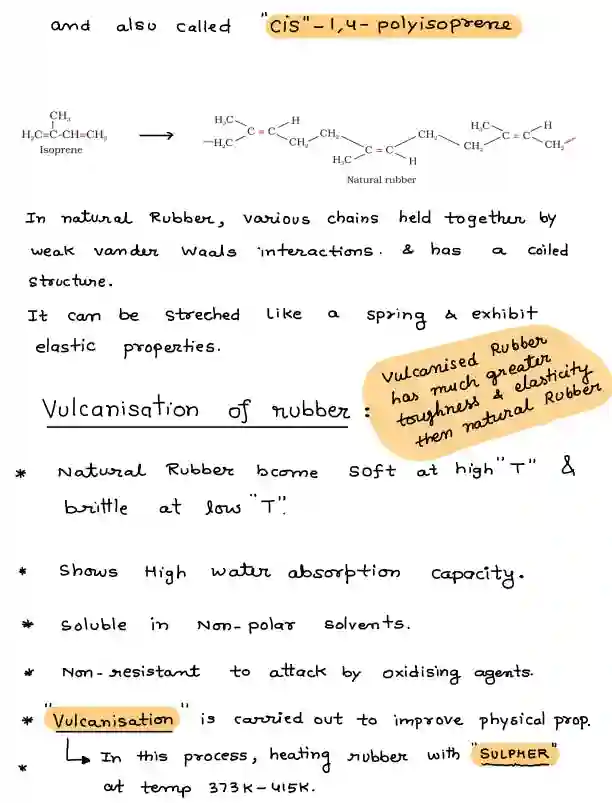 and also called "cis"-1,4-polyisoprene
CH₃
H₂C=C-CH=CH₂
Isoprene
H₃C H
C=C
H₂C CH₂ CH₂
C=C
H₃C H
CH₂ CH₂
H₃C H
C=C
CH₂
Natural rubber
In natural Rubber, various chains held together by
weak vander Waals interactions. & has a coiled
structure.
It can be streched like a spring & exhibit
elastic properties.
Vulcanised Rubber
has much greater
toughness & elasticity
then natural Rubber
Vulcanisation of rubber :
* Natural Rubber bcome soft at high "T" &
brittle at low "T".
* Shows High water absorption capacity.
* Soluble in Non-polar solvents.
* Non-resistant to attack by oxidising agents.
* "Vulcanisation" is carried out to improve physical prop.
* ↳ In this process, heating rubber with "SULPHER"
at temp 373K-415K.